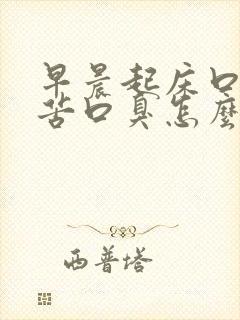 早晨起床口
苦口臭怎麼
西普塔